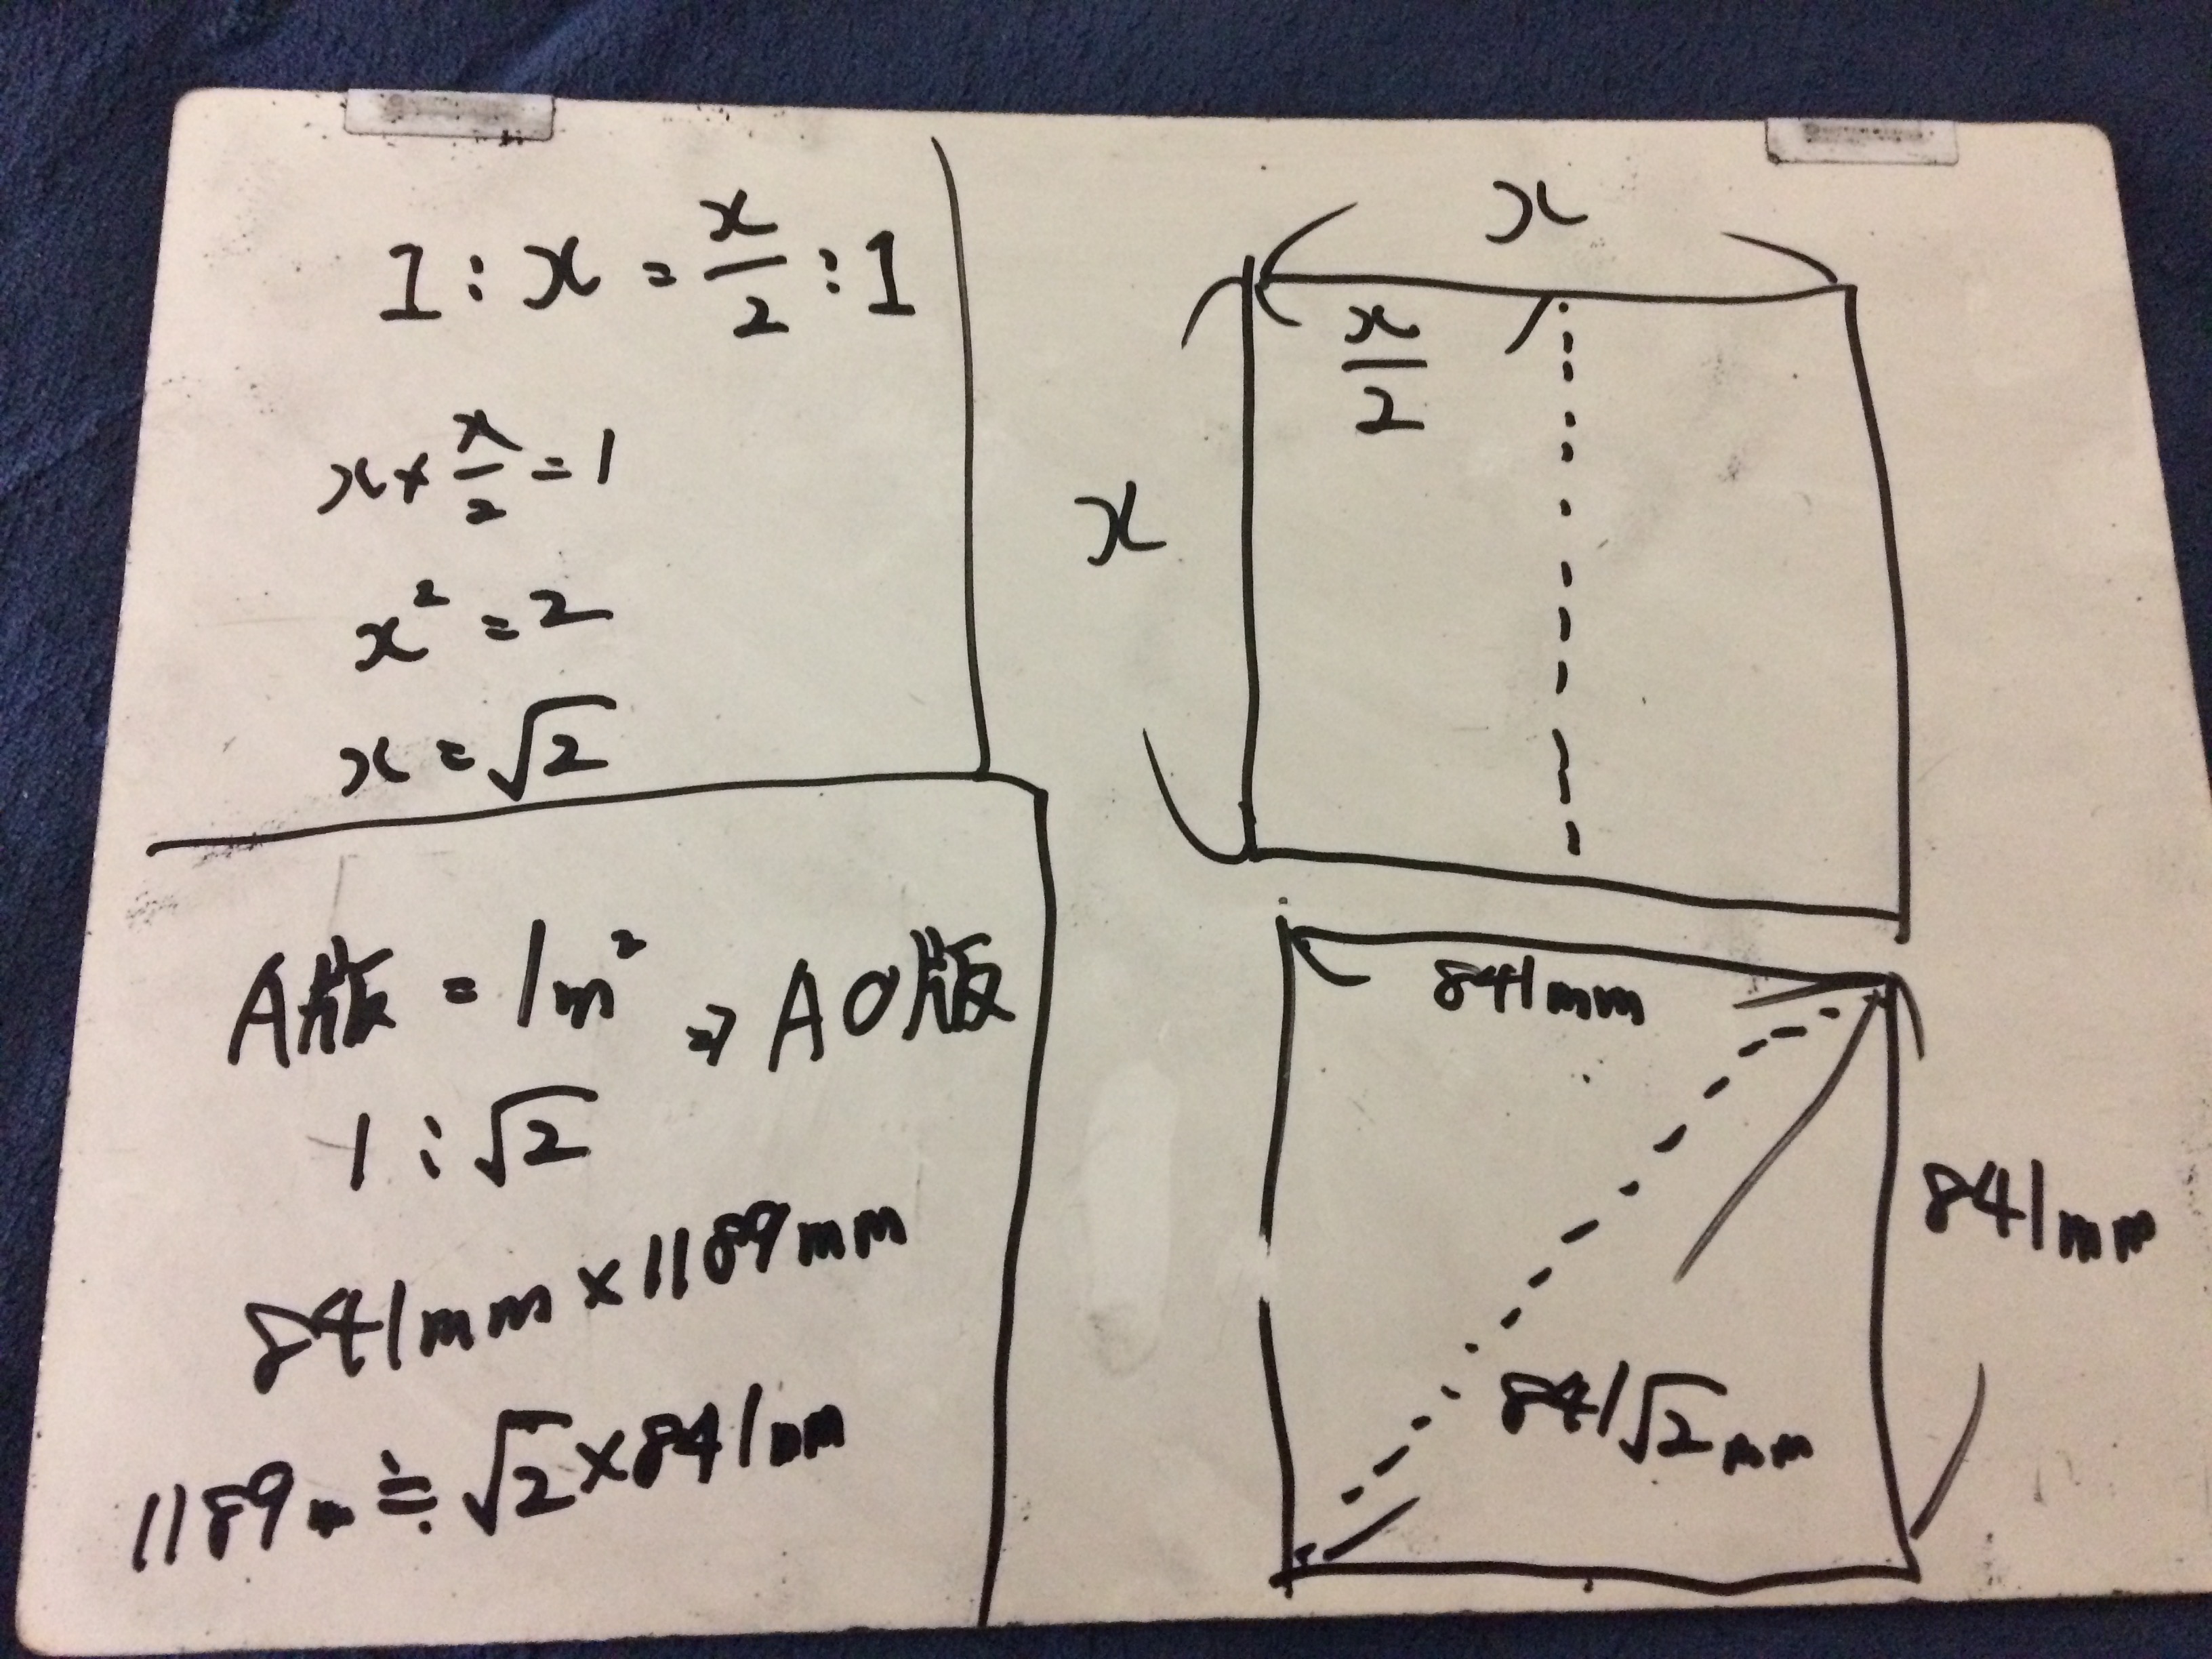 1:x = x/2 :1
x × x/2 = 1
x² = 2
x = √2
A版 = 1m² ⇒ A0版
1:√2
841mm × 1189mm
1189m ≒ √2 × 841m
x
x
x/2
841mm
841√2mm
841mm